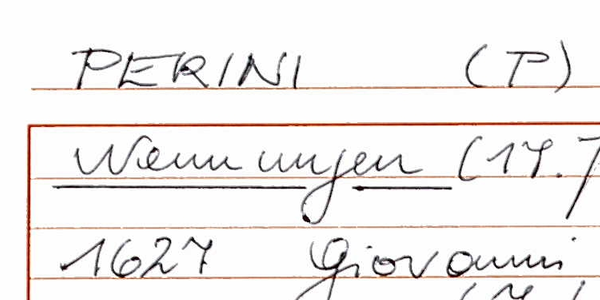 PERINI (P)
Nennungen (17.
1627 Giovanni